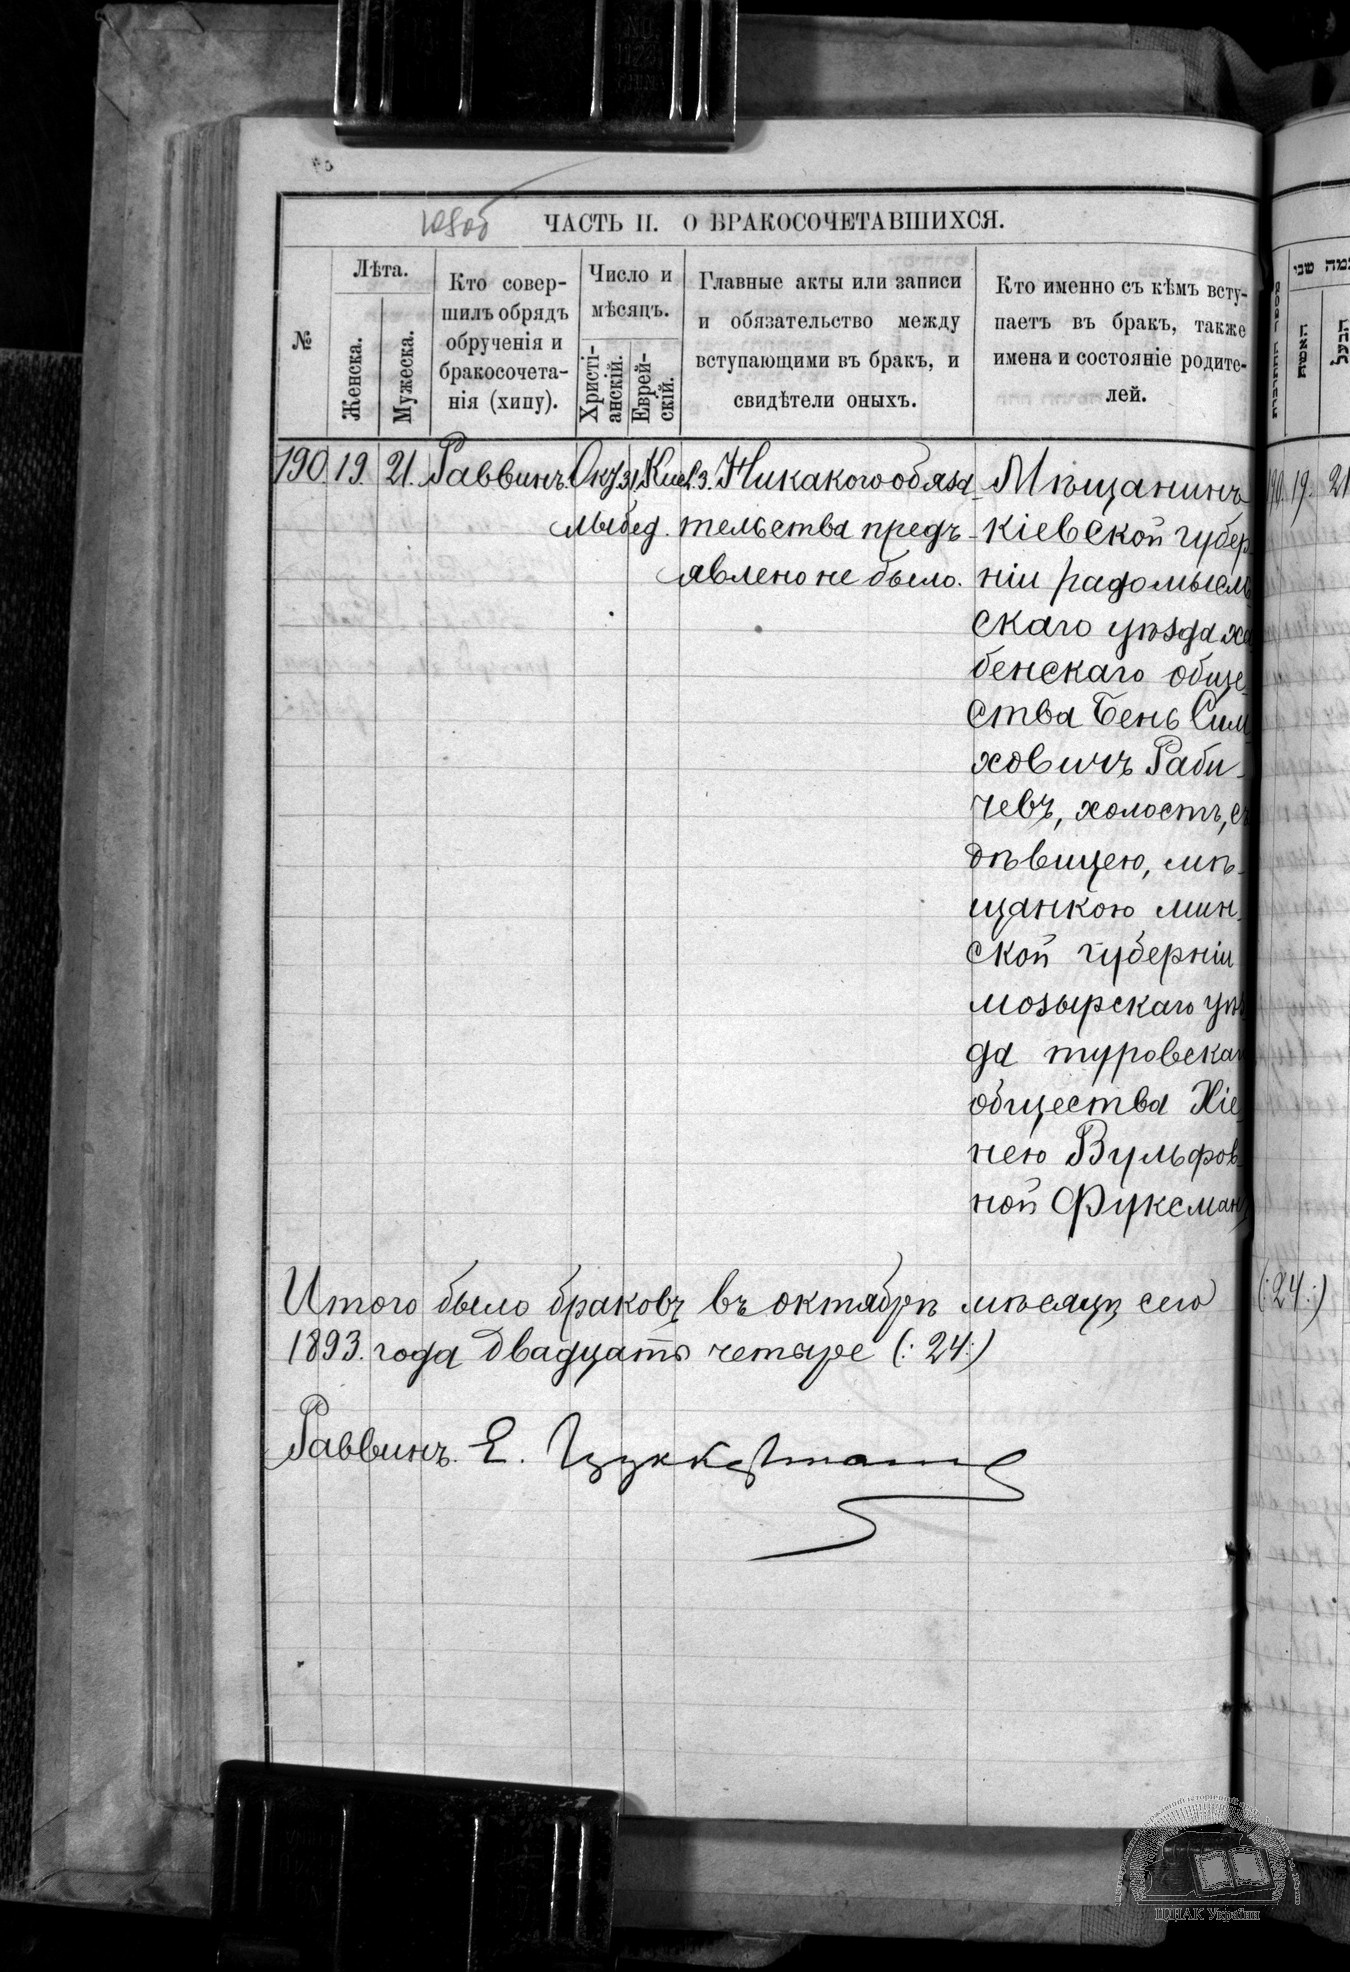 ЧАСТЬ II. О БРАКОСОЧЕТАВШИХСЯ.
№
Лѣта.
Женска.
Мужеска.
Кто совер-
шилъ обрядъ
обрученія и
бракосочета-
нія (хипу).
Число и
мѣсяцъ.
Христі-
анскій.
Еврей-
скій.
Главные акты или записи
и обязательство между
вступающими въ бракъ, и
свидѣтели оныхъ.
Кто именно съ кѣмъ всту-
паетъ въ бракъ, также
имена и состояніе родите-
лей.
190. 19. 21. Раввинъ. Окт. 31 Кисл. 3. Никакого обяза-
тельства предъ-
явлено не было.
Мѣщанинъ
кіевской губер
ніи радомысль
скаго уѣзда ха
бенскаго обще-
ства Бень Сим
ховичъ Раби-
чевъ, холостъ, съ
дѣвицею, мѣ-
щанкою мин-
ской губерніи
мозырскаго уѣз
да туровскаго
общества Хіе
нею Вульфов-
ной Фуксманъ
Итого было браковъ въ октябрѣ мѣсяцѣ сего
1893. года двадцать четыре (: 24:)
Раввинъ. Е. Цуккерманъ
190. 19. 21
(: 24 :)
האשה
הבעל
ЦДІАК України